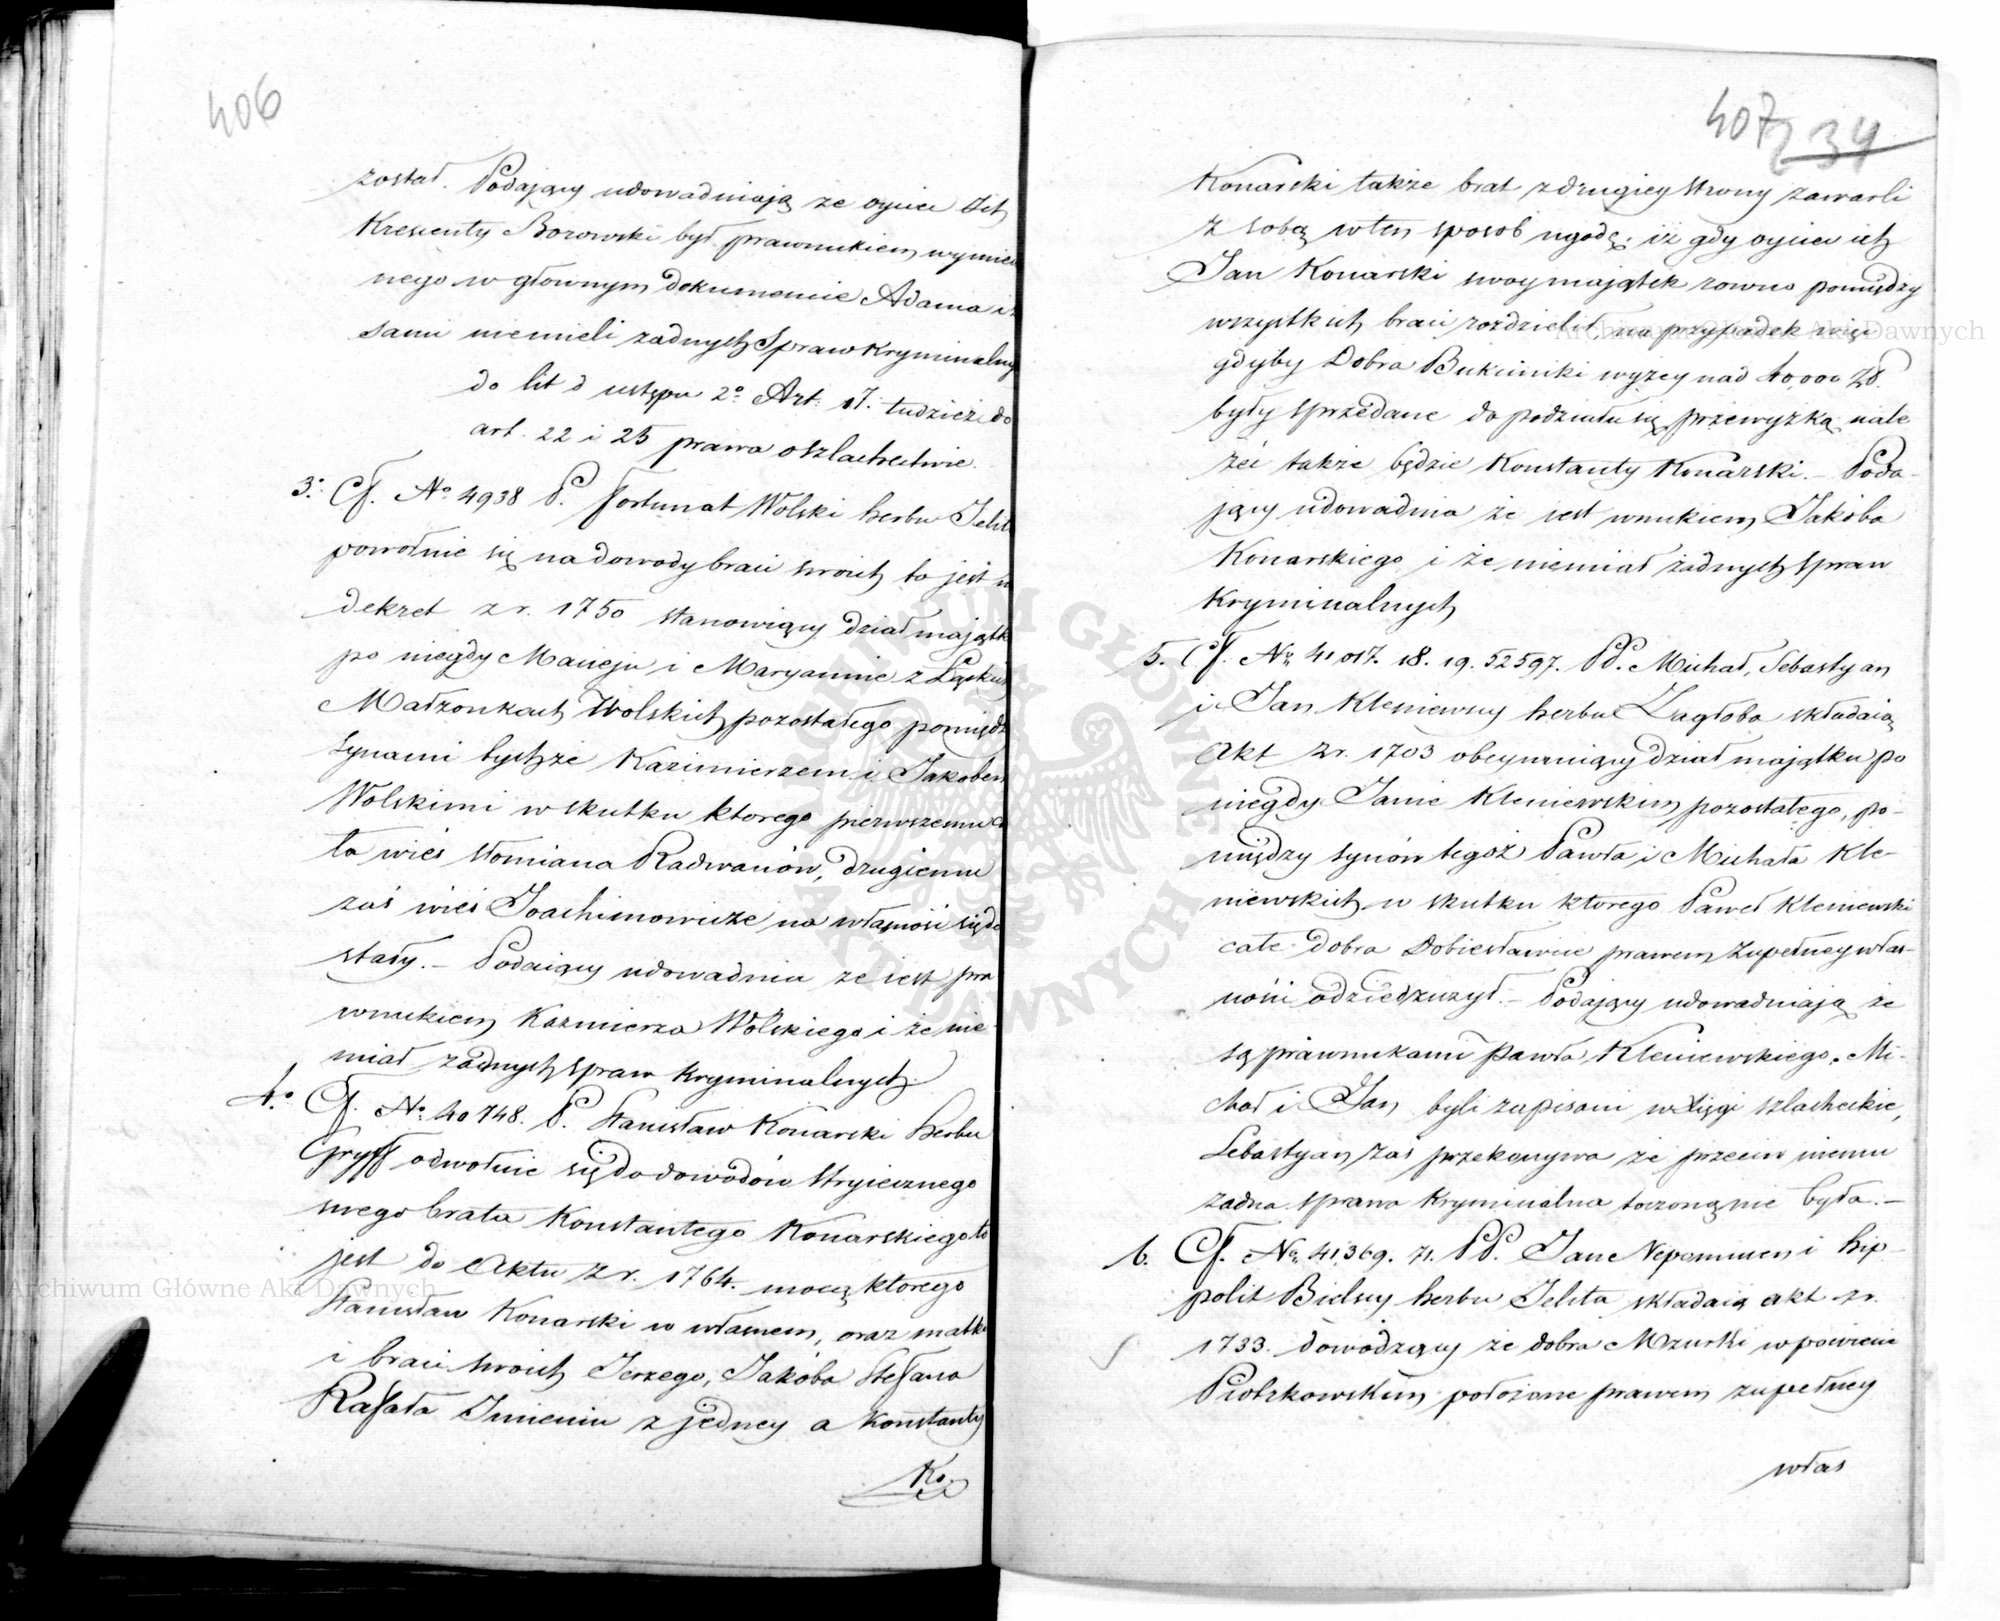 406
został. Podający udowadniają że oyciec ich
Kresienty Borowski był prawnukiem wymie
nego w głownym dokumencie Adama i
sami niemieli żadnych Spraw Kryminalny
do lit d ustępu 2º Art: 17. tudzież do
art. 22 i 25 prawa o szlachectwie.
3º. Cf. Nº 4938 P. Fortunat Wolski herbu Jelit
powołuie się na dowody braci swoich to jest
dekret z r. 1750 stanowiący dział majątk
po niegdy Macieju i Maryannie z
Małżonkach Wolskich pozostałego pomiędz
synami tychże Kazimierzem i Jakobem
Wolskimi w skutku ktorego pierwszemu
ta wieś Słomiana Radwanów, drugiemu
zaś wieś Joachimowicze na własność się do
stały. – Podaiący udowadnia ze iest pra
wnukiem Kazmierza Wolskiego i że nie
miał żadnych spraw Kryminalnych.
4º. Cf. Nº 40748. P. Stanisław Konarski herbu
Gryff odwołuie się do dowodów stryiecznego
swego brata Konstantego Konarskiego to
jest do Aktu z r. 1764. mocą ktorego
Stanisław Konarski w własnem, oraz matki
i braci swoich Jerzego, Jakóba Stefana
Rafała Imieniu z jedney a Konstanty
Ko
407
234
Konarski także brat z drugiey strony zawarli
z sobą w ten sposob ugodę; iż gdy oyciec ich
Jan Konarski swoy majątek rowno pomiędzy
wszystkich braci rozdzielił na przypadek więc
gdyby Dobra Bukciniki wyżey nad 40,000 zł.
były sprzedane do podziału się przewyżką nale
żeć także będzie Konstanty Konarski. – Poda-
jący udowadnia że iest wnukiem Jakóba
Konarskiego i że niemiał żadnych spraw
Kryminalnych
5. Cf. Nr 41,017. 18. 19. 52597. PP. Michał, Sebastyan
i Jan Kleniewscy herbu Zagłoba składaią
Akt z r. 1703 obeymuiący dział majątku po
niegdy Janie Kleniewskim pozostałego, po-
między synów tegoż Pawła i Michała Kle-
niewskich w skutku ktorego Paweł Kleniewski
całe dobra Dobiesławice prawem zupełney włas-
ności odziedziczył. – Podający udowadniają że
są prawnukami Pawła Kleniewskiego. Mi-
chał i Jan byli zapisani w Xięgi szlacheckie,
Sebastyan zaś przekonywa że przeciw niemu
żadna sprawa Kryminalna toczoną nie była. –
6. Cf. Nr 41,369. 71. PP. Jan Nepomucen i Hip
polit Bielscy herbu Jelita składaią akt z r.
1733. dowodzący że dobra Mzurki w powiecie
Piotrkowskim położone prawem zupełney
włas
Archiwum Główne Akt Dawnych
Archiwum Główne Akt Dawnych
ARCHIWUM GŁÓWNE AKT DAWNYCH